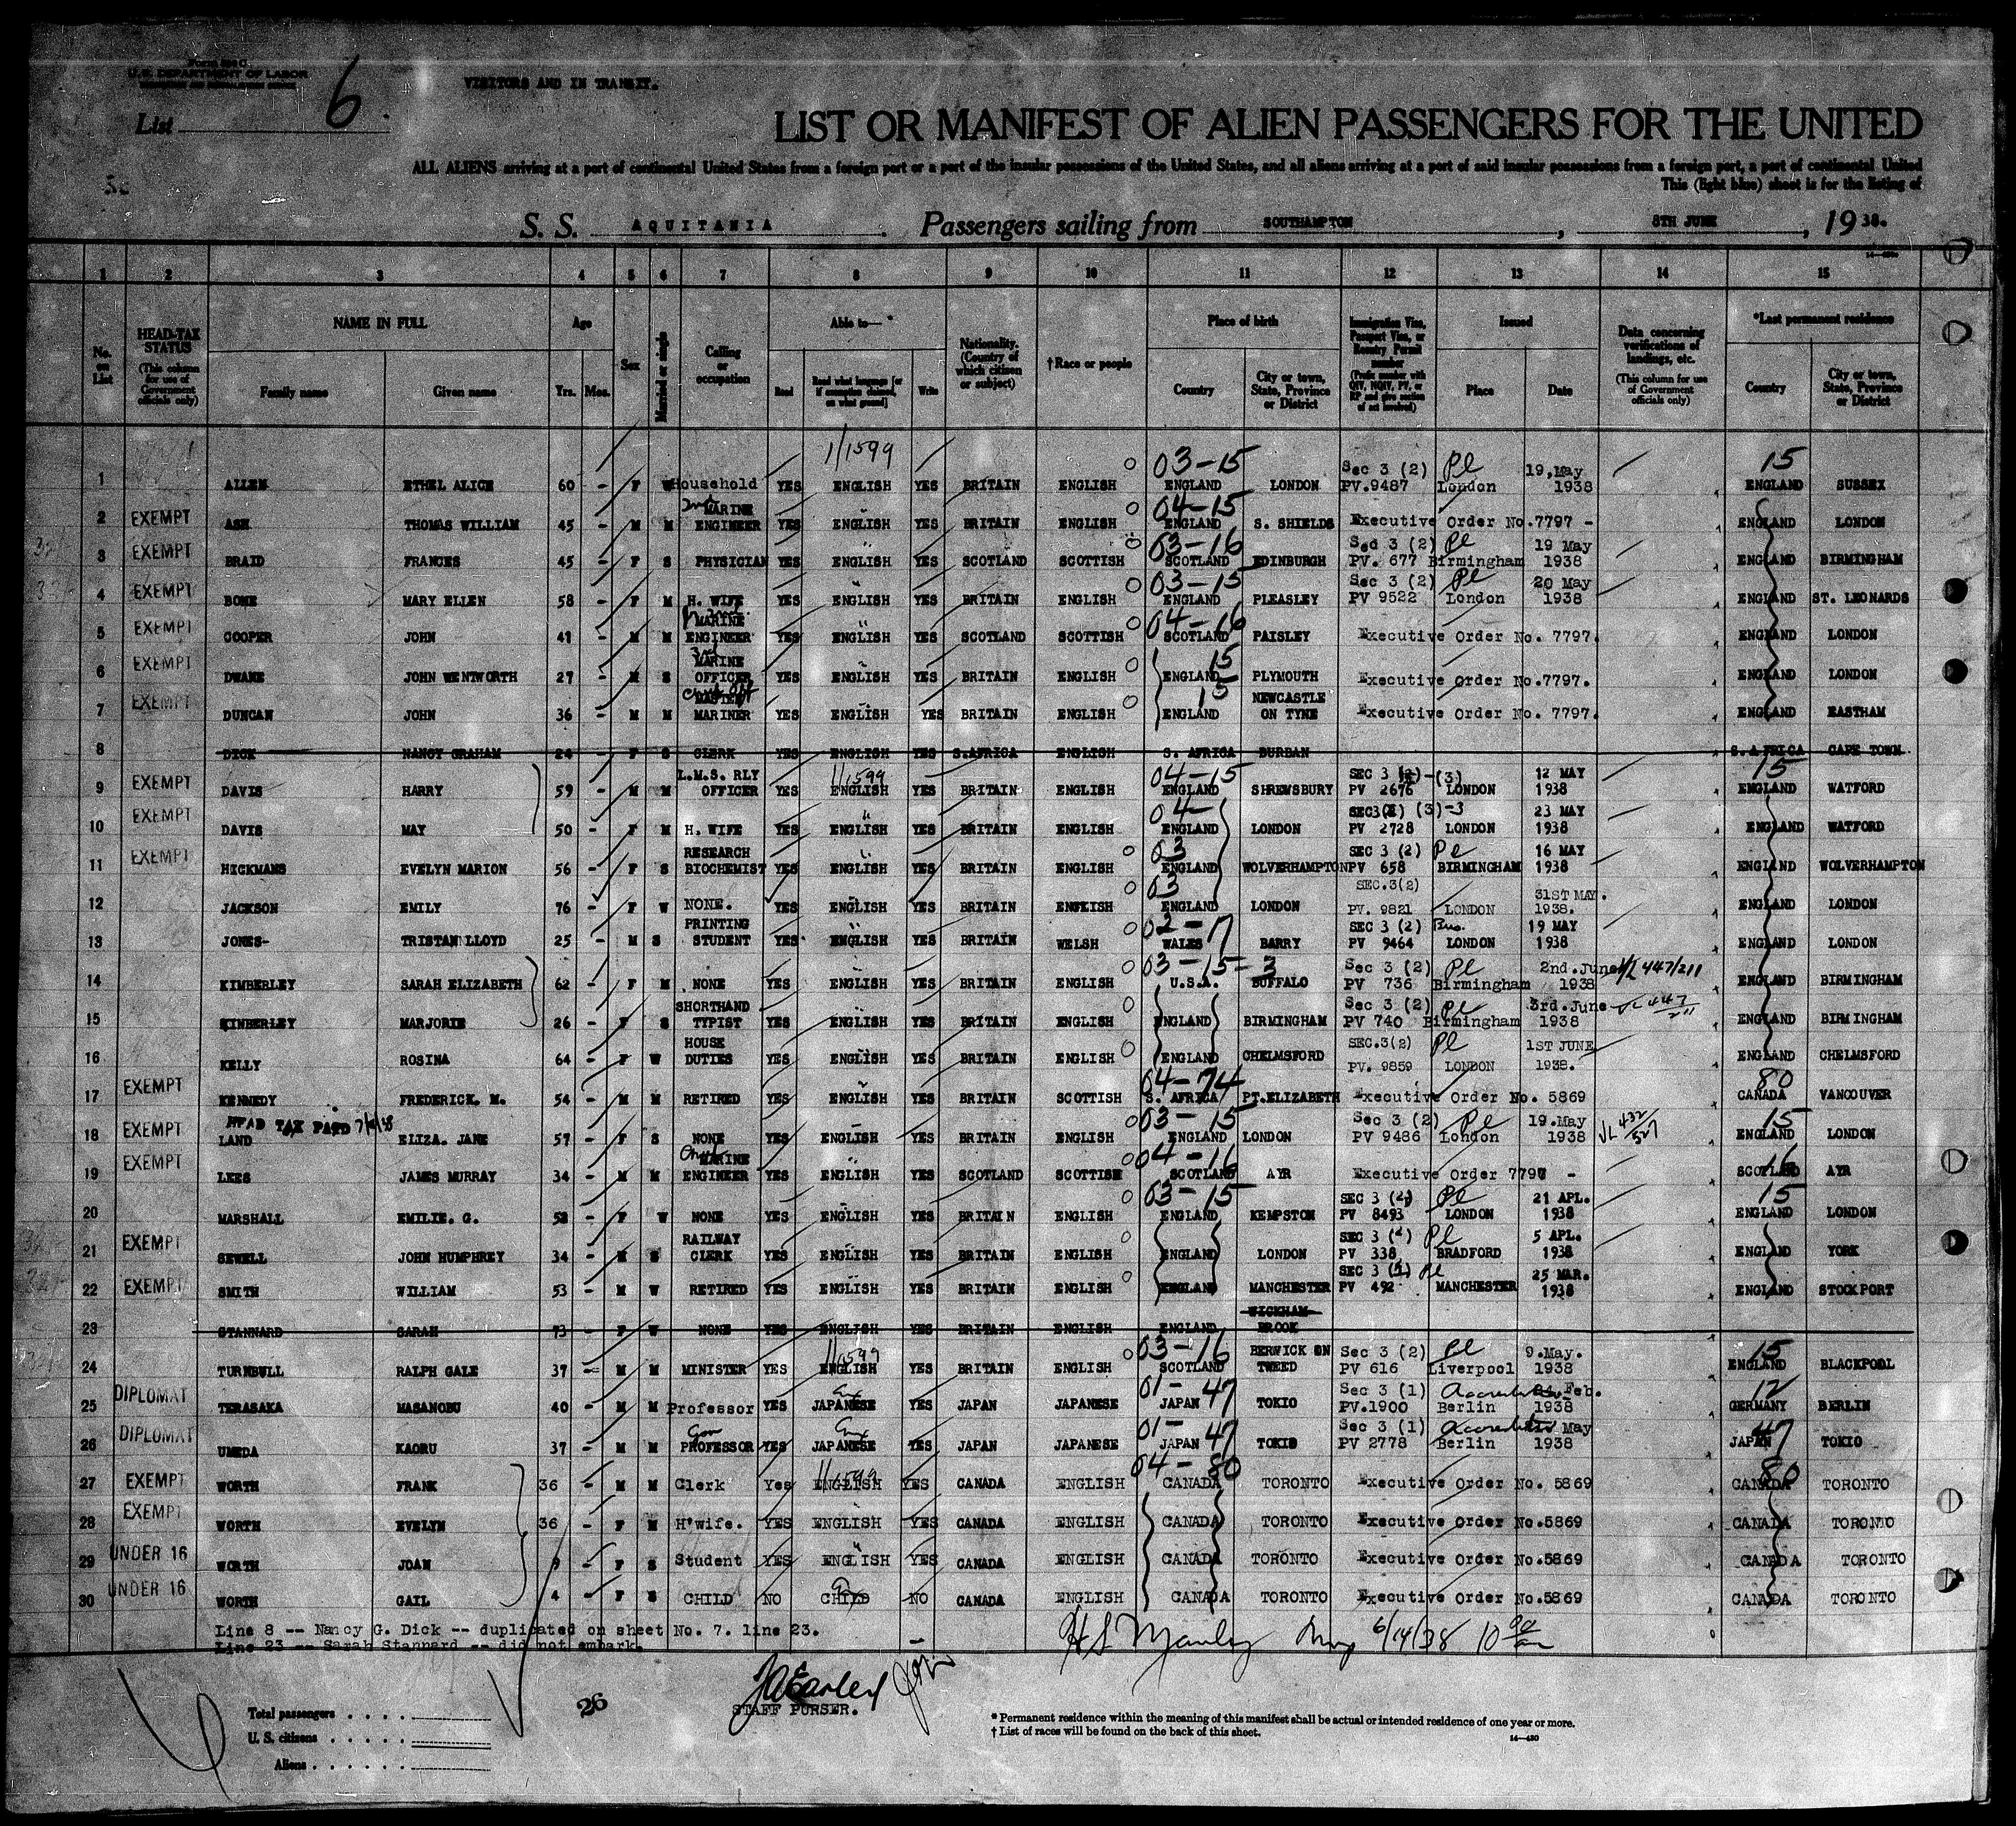 Form 500 C
U. S. DEPARTMENT OF LABOR
VISITORS AND IN TRANSIT.
List 6
LIST OR MANIFEST OF ALIEN PASSENGERS FOR THE UNITED
ALL ALIENS arriving at a port of continental United States from a foreign port or a port of the insular possessions of the United States, and all aliens arriving at a port of said insular possessions from a foreign port, a port of continental United
This (light blue) sheet is for the listing of
S. S. AQUITANIA. Passengers sailing from SOUTHAMPTON, 8TH JUNE, 19 38.
1 2 3 4 5 6 7 8 9 10 11 12 13 14 15
No. on List
HEAD-TAX STATUS (This column for use of Government officials only)
NAME IN FULL Family name Given name
Age Yrs. Mos.
Sex
Married or single
Calling or occupation
Able to— * Read Read what language [or if exemption claimed, on what ground] Write
Nationality. (Country of which citizen or subject)
† Race or people
Place of birth Country City or town, State, Province or District
Immigration Visa, Passport Visa, or Reentry Permit number (Prefix number with QIV, NQIV, PV, or RP and give section of act involved)
Issued Place Date
Data concerning verifications of landings, etc. (This column for use of Government officials only)
*Last permanent residence Country City or town, State, Province or District
1/1599 03-15 Sec 3 (2) Pl 19,May 15
1 ALLEN ETHEL ALICE 60 - F W Household YES ENGLISH YES BRITAIN ENGLISH ENGLAND LONDON PV.9487 London 1938 ENGLAND SUSSEX
2nd MARINE 04-15
2 EXEMPT ASH THOMAS WILLIAM 45 - M M ENGINEER YES ENGLISH YES BRITAIN ENGLISH ENGLAND S. SHIELDS Executive Order No.7797 - ENGLAND LONDON
03-16 Sec 3 (2) Pl 19 May
3 EXEMPT BRAID FRANCES 45 - F S PHYSICIAN YES ENGLISH YES SCOTLAND SCOTTISH SCOTLAND EDINBURGH PV. 677 Birmingham 1938 ENGLAND BIRMINGHAM
03-15 Sec 3 (2) Pl 20 May
4 EXEMPT BONE MARY ELLEN 58 - F M H. WIFE YES ENGLISH YES BRITAIN ENGLISH ENGLAND PLEASLEY PV 9522 London 1938 ENGLAND ST. LEONARDS
MARINE 04-16
5 EXEMPT COOPER JOHN 41 - M M ENGINEER YES ENGLISH YES SCOTLAND SCOTTISH SCOTLAND PAISLEY Executive Order No. 7797. ENGLAND LONDON
3rd MARINE 15
6 EXEMPT DWANE JOHN WENTWORTH 27 - M S OFFICER YES ENGLISH YES BRITAIN ENGLISH ENGLAND PLYMOUTH Executive Order No.7797. ENGLAND LONDON
MASTER 15 NEWCASTLE
7 EXEMPT DUNCAN JOHN 36 - M M MARINER YES ENGLISH YES BRITAIN ENGLISH ENGLAND ON TYNE Executive Order No. 7797. ENGLAND EASTHAM
8 DICK NANCY GRAHAM 24 - F S CLERK YES ENGLISH YES S.AFRICA ENGLISH S. AFRICA DURBAN S. AFRICA CAPE TOWN
L.M.S. RLY 1/1599 04-15 SEC 3 (2)-(3) 12 MAY 15
9 EXEMPT DAVIS HARRY 59 - M M OFFICER YES ENGLISH YES BRITAIN ENGLISH ENGLAND SHREWSBURY PV 2676 LONDON 1938 ENGLAND WATFORD
04- SEC3(2) (3)-3 23 MAY
10 EXEMPT DAVIS MAY 50 - F M H. WIFE YES ENGLISH YES BRITAIN ENGLISH ENGLAND LONDON PV 2728 LONDON 1938 ENGLAND WATFORD
RESEARCH 03 SEC 3 (2) Pl 16 MAY
11 EXEMPT HICKMANS EVELYN MARION 56 - F S BIOCHEMIST YES ENGLISH YES BRITAIN ENGLISH ENGLAND WOLVERHAMPTON PV 658 BIRMINGHAM 1938 ENGLAND WOLVERHAMPTON
03 SEC.3(2) 31ST MAY.
12 JACKSON EMILY 76 - F W NONE. YES ENGLISH YES BRITAIN ENGKISH ENGLAND LONDON PV. 9821 LONDON 1938. ENGLAND LONDON
PRINTING 02-17 SEC 3 (2) Bus. 19 MAY
13 JONES- TRISTAN LLOYD 25 - M S STUDENT YES ENGLISH YES BRITAIN WELSH WALES BARRY PV 9464 LONDON 1938 ENGLAND LONDON
03-15-3 Sec 3 (2) Pl 2nd.June V/L 447/211
14 KIMBERLEY SARAH ELIZABETH 62 - F M NONE YES ENGLISH YES BRITAIN ENGLISH U.S.A. BUFFALO PV 736 Birmingham 1938 ENGLAND BIRMINGHAM
SHORTHAND Sec 3 (2) Pl 3rd.June VL 447/211
15 KIMBERLEY MARJORIE 26 - F S TYPIST YES ENGLISH YES BRITAIN ENGLISH ENGLAND BIRMINGHAM PV 740 Birmingham 1938 ENGLAND BIRMINGHAM
HOUSE SEC.3(2) Pl 1ST JUNE
16 KELLY ROSINA 64 - F W DUTIES YES ENGLISH YES BRITAIN ENGLISH ENGLAND CHELMSFORD PV. 9859 LONDON 1938. ENGLAND CHELMSFORD
04-74 80
17 EXEMPT KENNEDY FREDERICK. M. 54 - M M RETIRED YES ENGLISH YES BRITAIN SCOTTISH S. AFRICA PT.ELIZABETH Executive Order No. 5869 CANADA VANCOUVER
HEAD TAX PAID 03-15 Sec 3 (2) Pl 19.May VL 432/527 15
18 EXEMPT LAND ELIZA. JANE 57 - F S NONE YES ENGLISH YES BRITAIN ENGLISH ENGLAND LONDON PV 9486 London 1938 ENGLAND LONDON
MARINE 04-16 16
19 EXEMPT LEES JAMES MURRAY 34 - M M ENGINEER YES ENGLISH YES SCOTLAND SCOTTISH SCOTLAND AYR Executive Order 7797 - SCOTLAND AYR
03-15 SEC 3 (2) Pl 21 APL. 15
20 MARSHALL EMILIE. G. 52 - F W NONE YES ENGLISH YES BRITAIN ENGLISH ENGLAND KEMPSTON PV 8493 LONDON 1938 ENGLAND LONDON
RAILWAY SEC 3 (2) Pl 5 APL.
21 EXEMPT SEWELL JOHN HUMPHREY 34 - M S CLERK YES ENGLISH YES BRITAIN ENGLISH ENGLAND LONDON PV 338 BRADFORD 1938 ENGLAND YORK
SEC 3 (2) Pl 25 MAR.
22 EXEMPT SMITH WILLIAM 53 - M W RETIRED YES ENGLISH YES BRITAIN ENGLISH ENGLAND MANCHESTER PV 492 MANCHESTER 1938 ENGLAND STOCKPORT
WICKHAM
23 STANNARD SARAH 73 - F W NONE YES ENGLISH YES BRITAIN ENGLISH ENGLAND BROOK
1/1599 03-16 BERWICK ON Sec 3 (2) Pl 9.May. 15
24 TURNBULL RALPH GALE 37 - M M MINISTER YES ENGLISH YES BRITAIN ENGLISH SCOTLAND TWEED PV 616 Liverpool 1938 ENGLAND BLACKPOOL
01-47 Sec 3 (1) Feb. 12
25 DIPLOMAT TERASAKA MASANOBU 40 - M M Professor YES JAPANESE YES JAPAN JAPANESE JAPAN TOKIO PV.1900 Berlin 1938 GERMANY BERLIN
01-47 Sec 3 (1) May 47
26 DIPLOMAT UMEDA KAORU 37 - M M PROFESSOR YES JAPANESE YES JAPAN JAPANESE JAPAN TOKIO PV 2778 Berlin 1938 JAPAN TOKIO
1/1599 04-80 80
27 EXEMPT WORTH FRANK 36 - M M Clerk Yes ENGLISH YES CANADA ENGLISH CANADA TORONTO Executive Order No. 5869 CANADA TORONTO
28 EXEMPT WORTH EVELYN 36 - F M H'wife. YES ENGLISH YES CANADA ENGLISH CANADA TORONTO Executive Order No.5869 CANADA TORONTO
29 UNDER 16 WORTH JOAN 9 - F S Student YES ENGLISH YES CANADA ENGLISH CANADA TORONTO Executive Order No.5869 CANADA TORONTO
30 UNDER 16 WORTH GAIL 4 - F S CHILD NO CHILD NO CANADA ENGLISH CANADA TORONTO Executive Order No.5869 CANADA TORONTO
Line 8 -- Nancy G. Dick -- duplicated on sheet No. 7. line 23.
Line 23 -- Sarah Stannard -- did not embark.
6/14/38 10
26
STAFF PURSER.
Total passengers
U. S. citizens
Aliens
* Permanent residence within the meaning of this manifest shall be actual or intended residence of one year or more.
† List of races will be found on the back of this sheet.
14—430